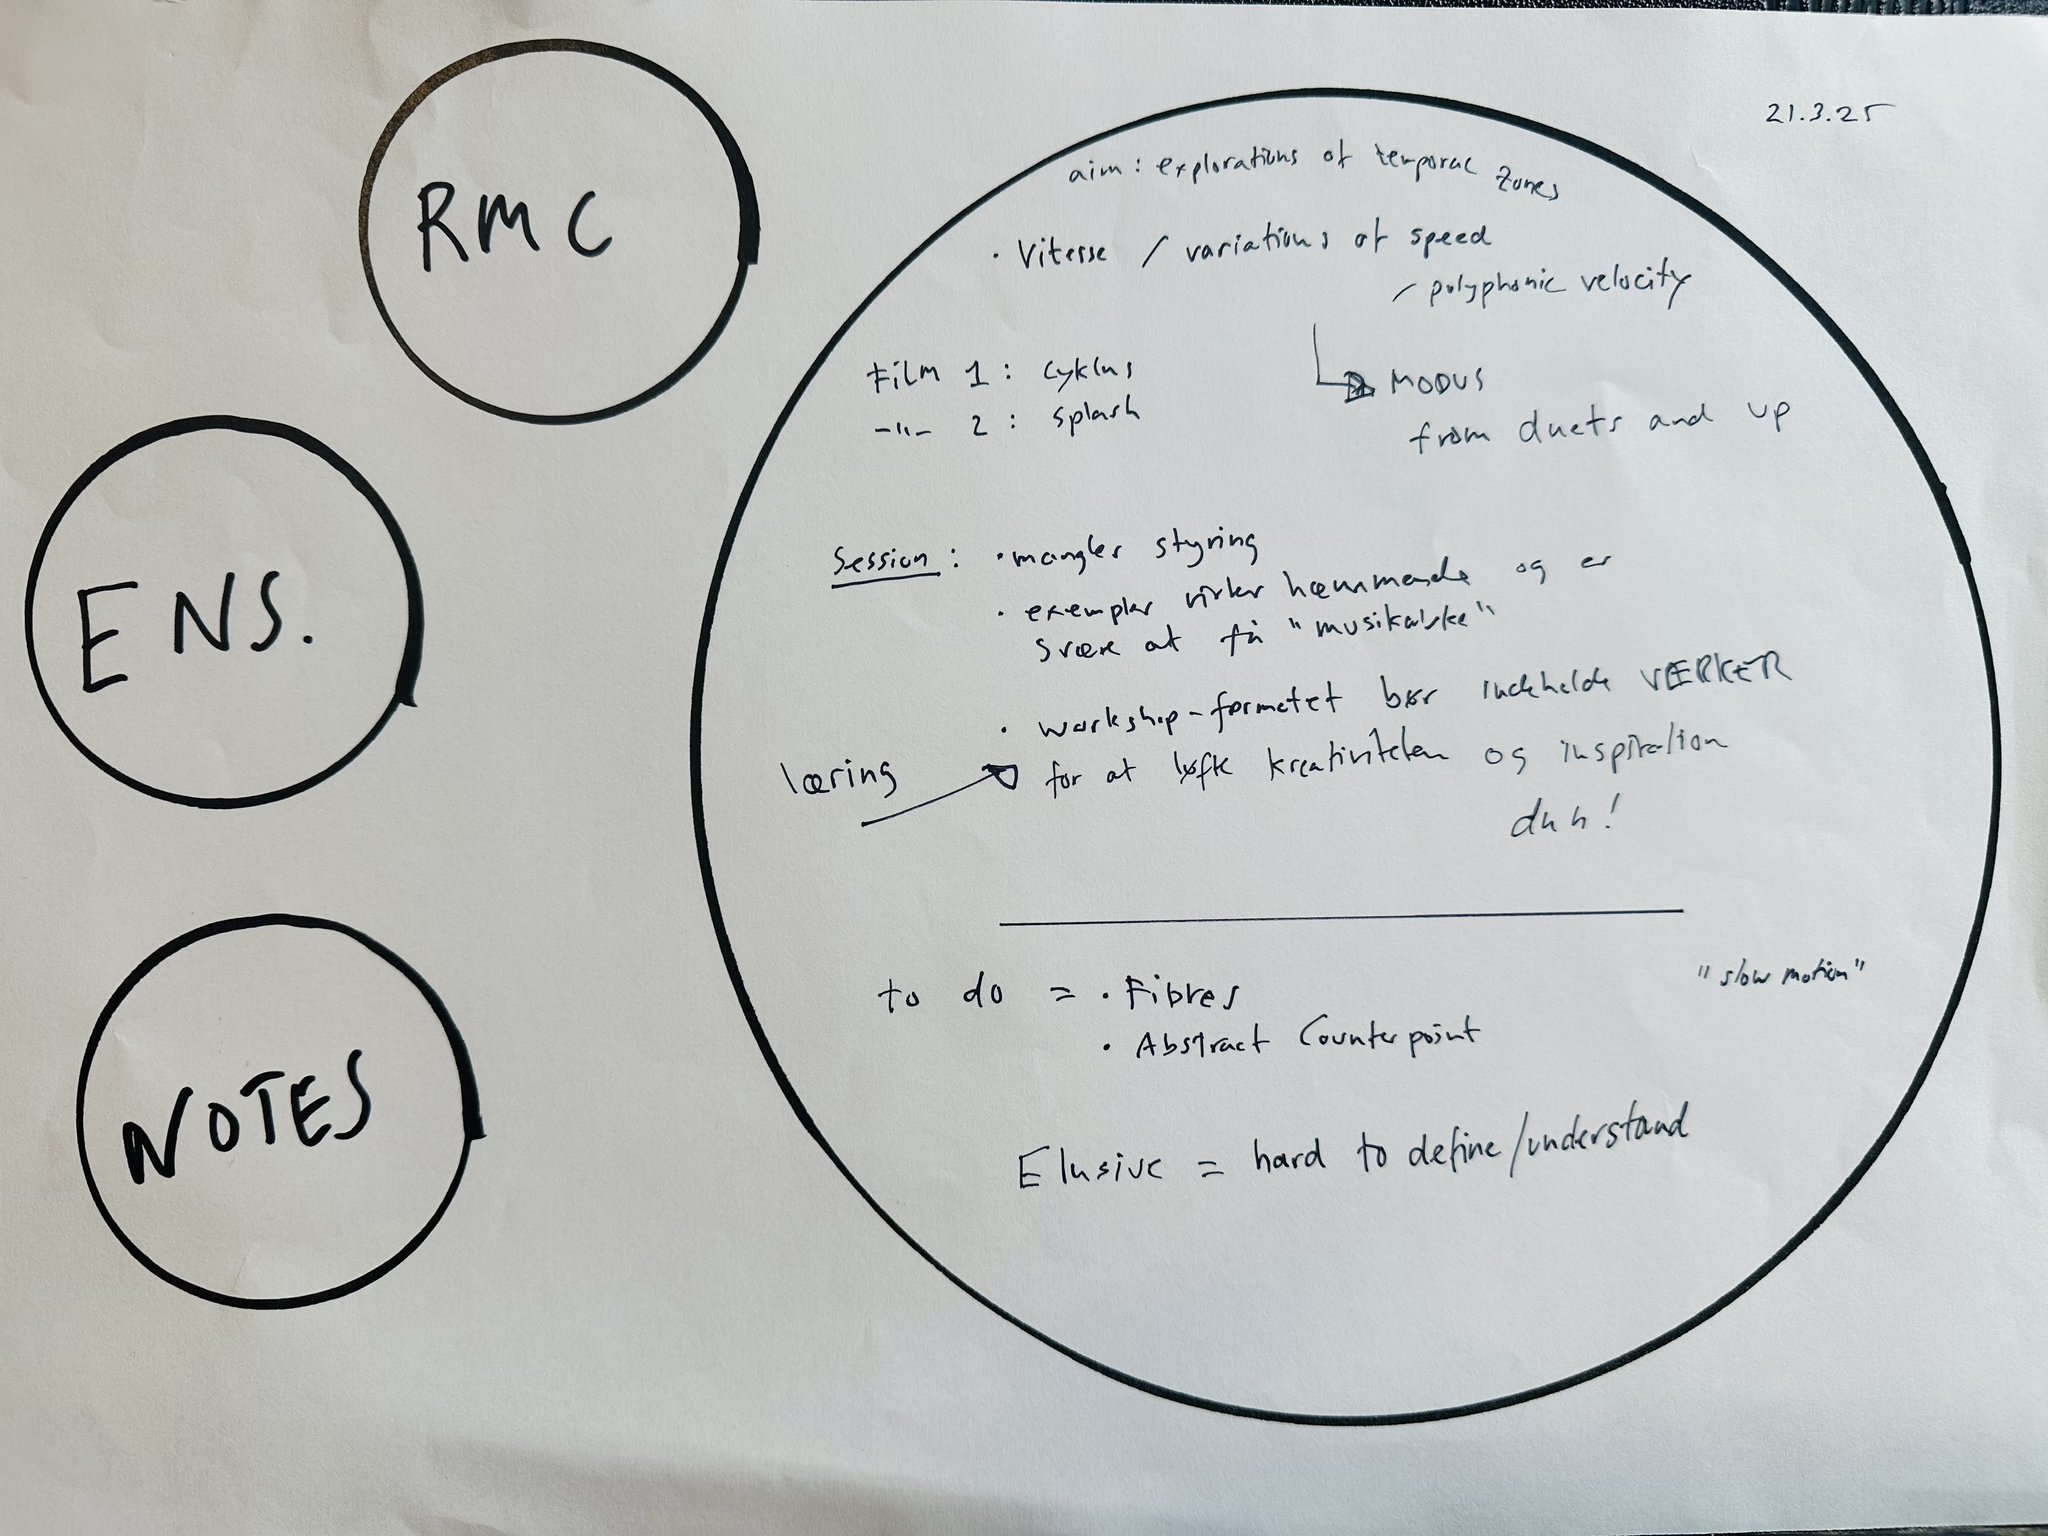 RMC
ENS.
NOTES
21.3.25
aim: explorations of temporal zones
· Vitesse / variations of speed
/ polyphonic velocity
MODUS
from duets and up
Film 1 : cyklus
-"- 2 : splash
Session : · mangler styring
· exempler virker hæmmende og er
svære at få "musikalske"
· workshop-formatet bør indeholde VÆRKER
læring for at løfte kreativiteten og inspiration
duh!
to do = · Fibres
· Abstract Counterpoint
"slow motion"
Elusive = hard to define/understand